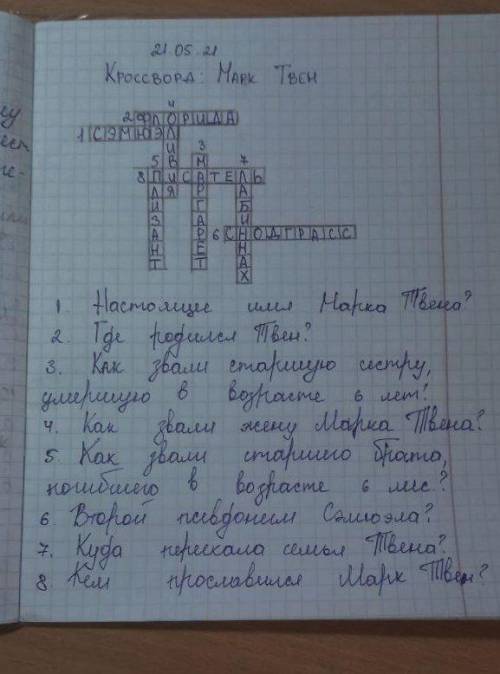 21.05.21
Кроссворд: Марк Твен
4
2 ФЛОРИДА
1 СЭМЮЭЛ
ОЛИВИЯ
5
3
7
8 ПИСАТЕЛЬ
ПЛИЗАНТ
МАРГАРЕТ
6 СНОДГРАСС
1. Настоящее имя Марка Твена?
2. Где родился Твен?
3. Как звали старшую сестру,
умершую в возрасте 6 лет?
4. Как звали жену Марка Твена?
5. Как звали старшего брата,
погибшего в возрасте 6 мес?
6. Второй псевдоним Сэмюэла?
7. Куда переехала семья Твена?
8. Кем прославился Марк Твен?